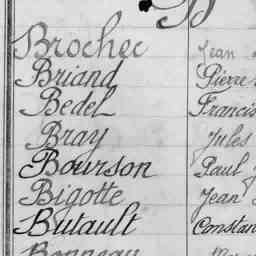 B
Brochec Jean
Briand Pierre
Bedel Francis
Bray Jules
Bourson Paul
Bigotte Jean
Butault Constan
Bonneau